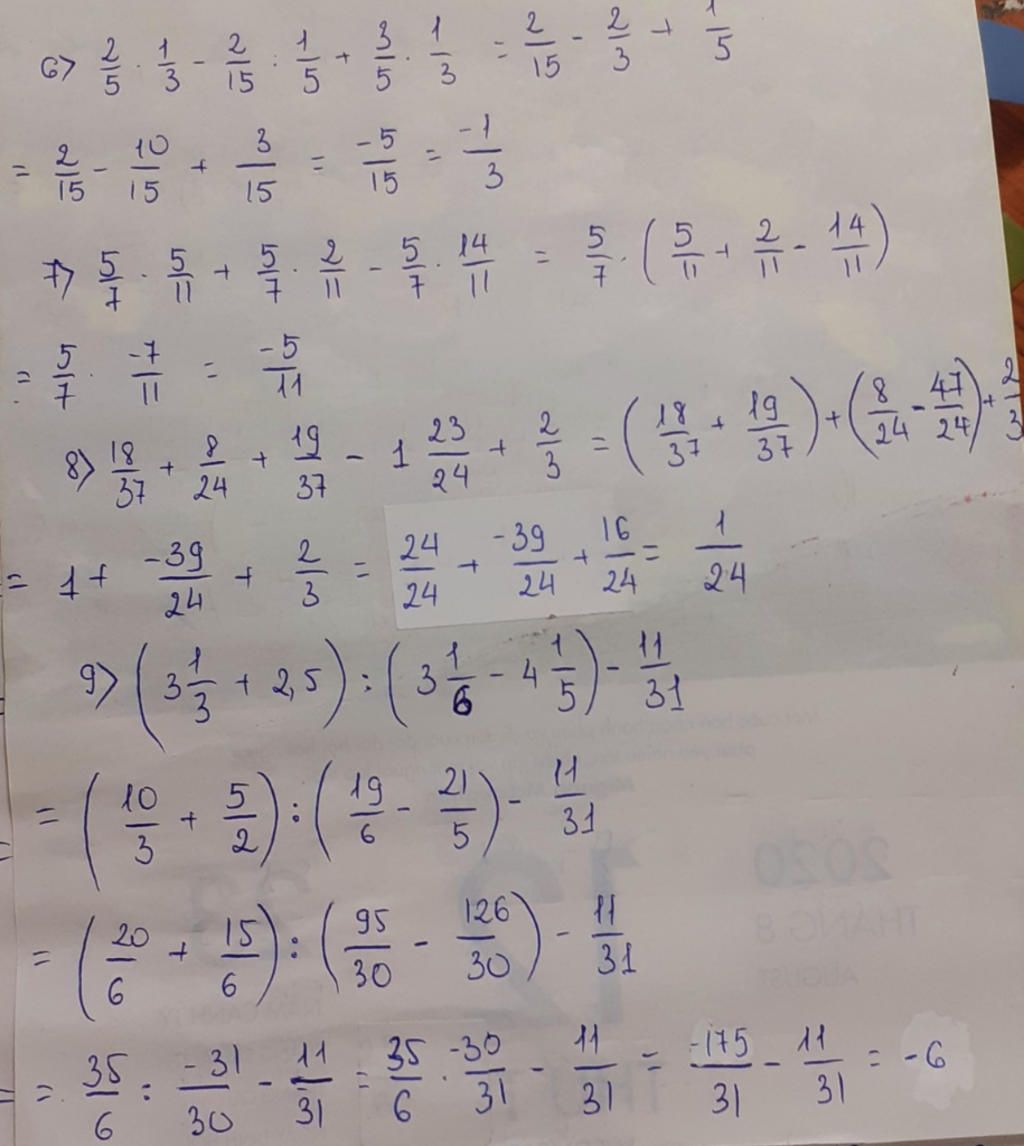 6) 2/5 . 1/3 - 2/15 : 1/5 + 3/5 . 1/3 = 2/15 - 2/3 + 1/5
= 2/15 - 10/15 + 3/15 = -5/15 = -1/3
7) 5/7 . 5/11 + 5/7 . 2/11 - 5/7 . 14/11 = 5/7 . (5/11 + 2/11 - 14/11)
= 5/7 . -7/11 = -5/11
8) 18/37 + 8/24 + 19/37 - 1 23/24 + 2/3 = (18/37 + 19/37) + (8/24 - 47/24) + 2/3
= 1 + -39/24 + 2/3 = 24/24 + -39/24 + 16/24 = 1/24
9) (3 1/3 + 2,5) : (3 1/6 - 4 1/5) - 11/31
= (10/3 + 5/2) : (19/6 - 21/5) - 11/31
= (20/6 + 15/6) : (95/30 - 126/30) - 11/31
= 35/6 : -31/30 - 11/31 = 35/6 . -30/31 - 11/31 = -175/31 - 11/31 = -6
2020
THÁNG 8
AUGUST
12